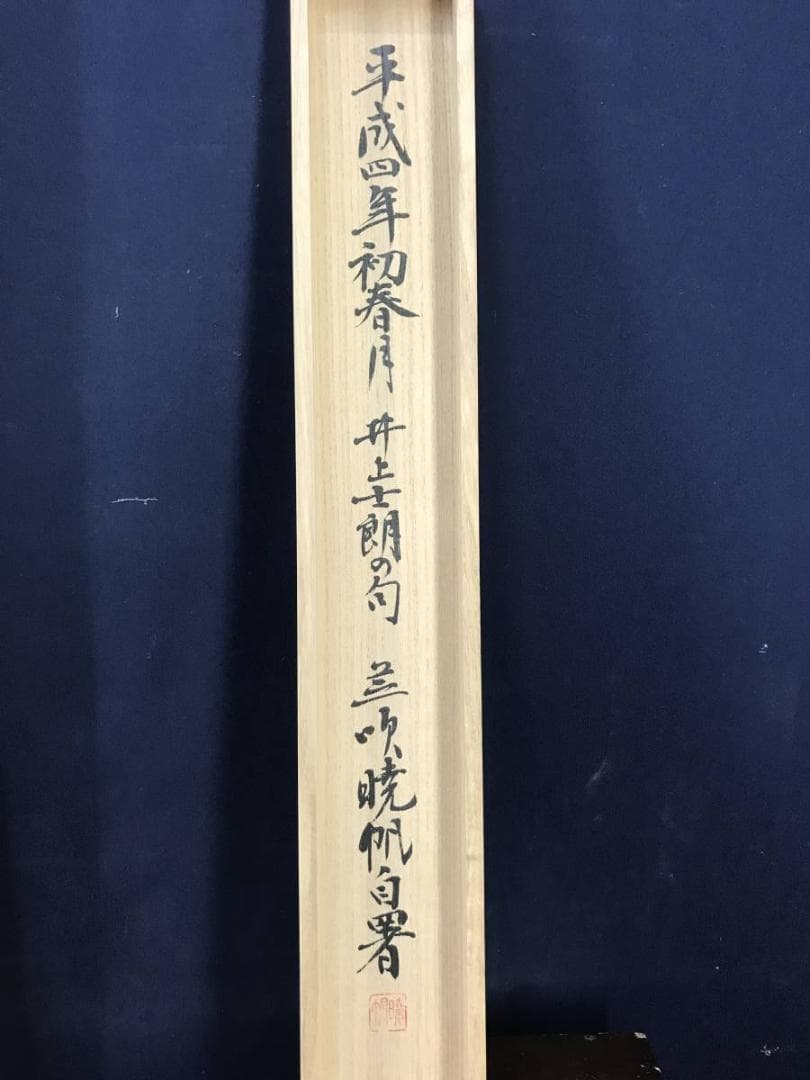 平成四年初春月 井上士朗の句 兰吹暁帆自署